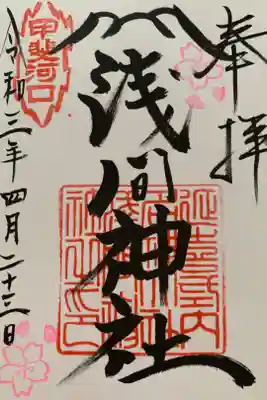 奉拝
浅間神社
甲斐河口
令和三年四月二十三日